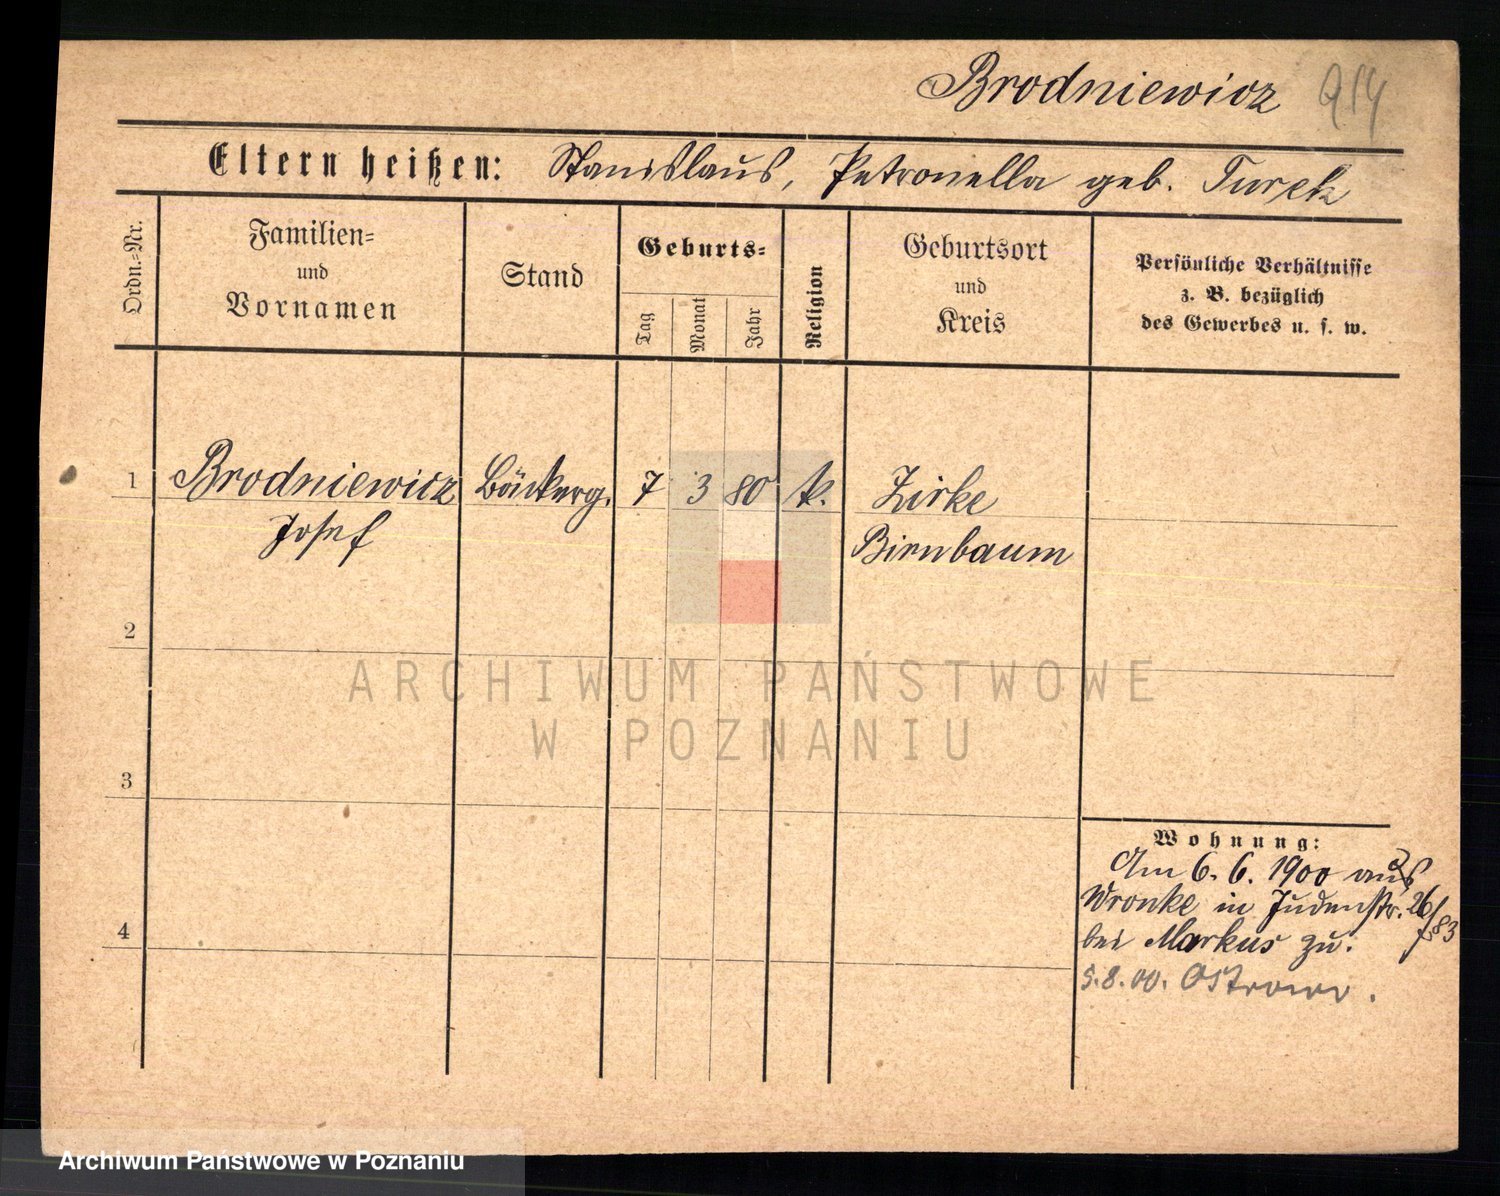 Brodniewicz 914
Eltern heißen: Stanislaus, Petronella geb. Turek
Ordn.=Nr.
Familien=
und
Vornamen
Stand
Geburts=
Tag
Monat
Jahr
Religion
Geburtsort
und
Kreis
Persönliche Verhältnisse
z. B. bezüglich
des Gewerbes u. s. w.
1 Brodniewicz Bäckerg. 7 3 80 k. Zirke
Josef Birnbaum
2
3
4
Wohnung:
Am 6. 6. 1900 aus
Wronke in Judenstr. 26/
bei Markus zu.
5.8.00. Ostrowo.
ARCHIWUM PAŃSTWOWE
W POZNANIU
Archiwum Państwowe w Poznaniu